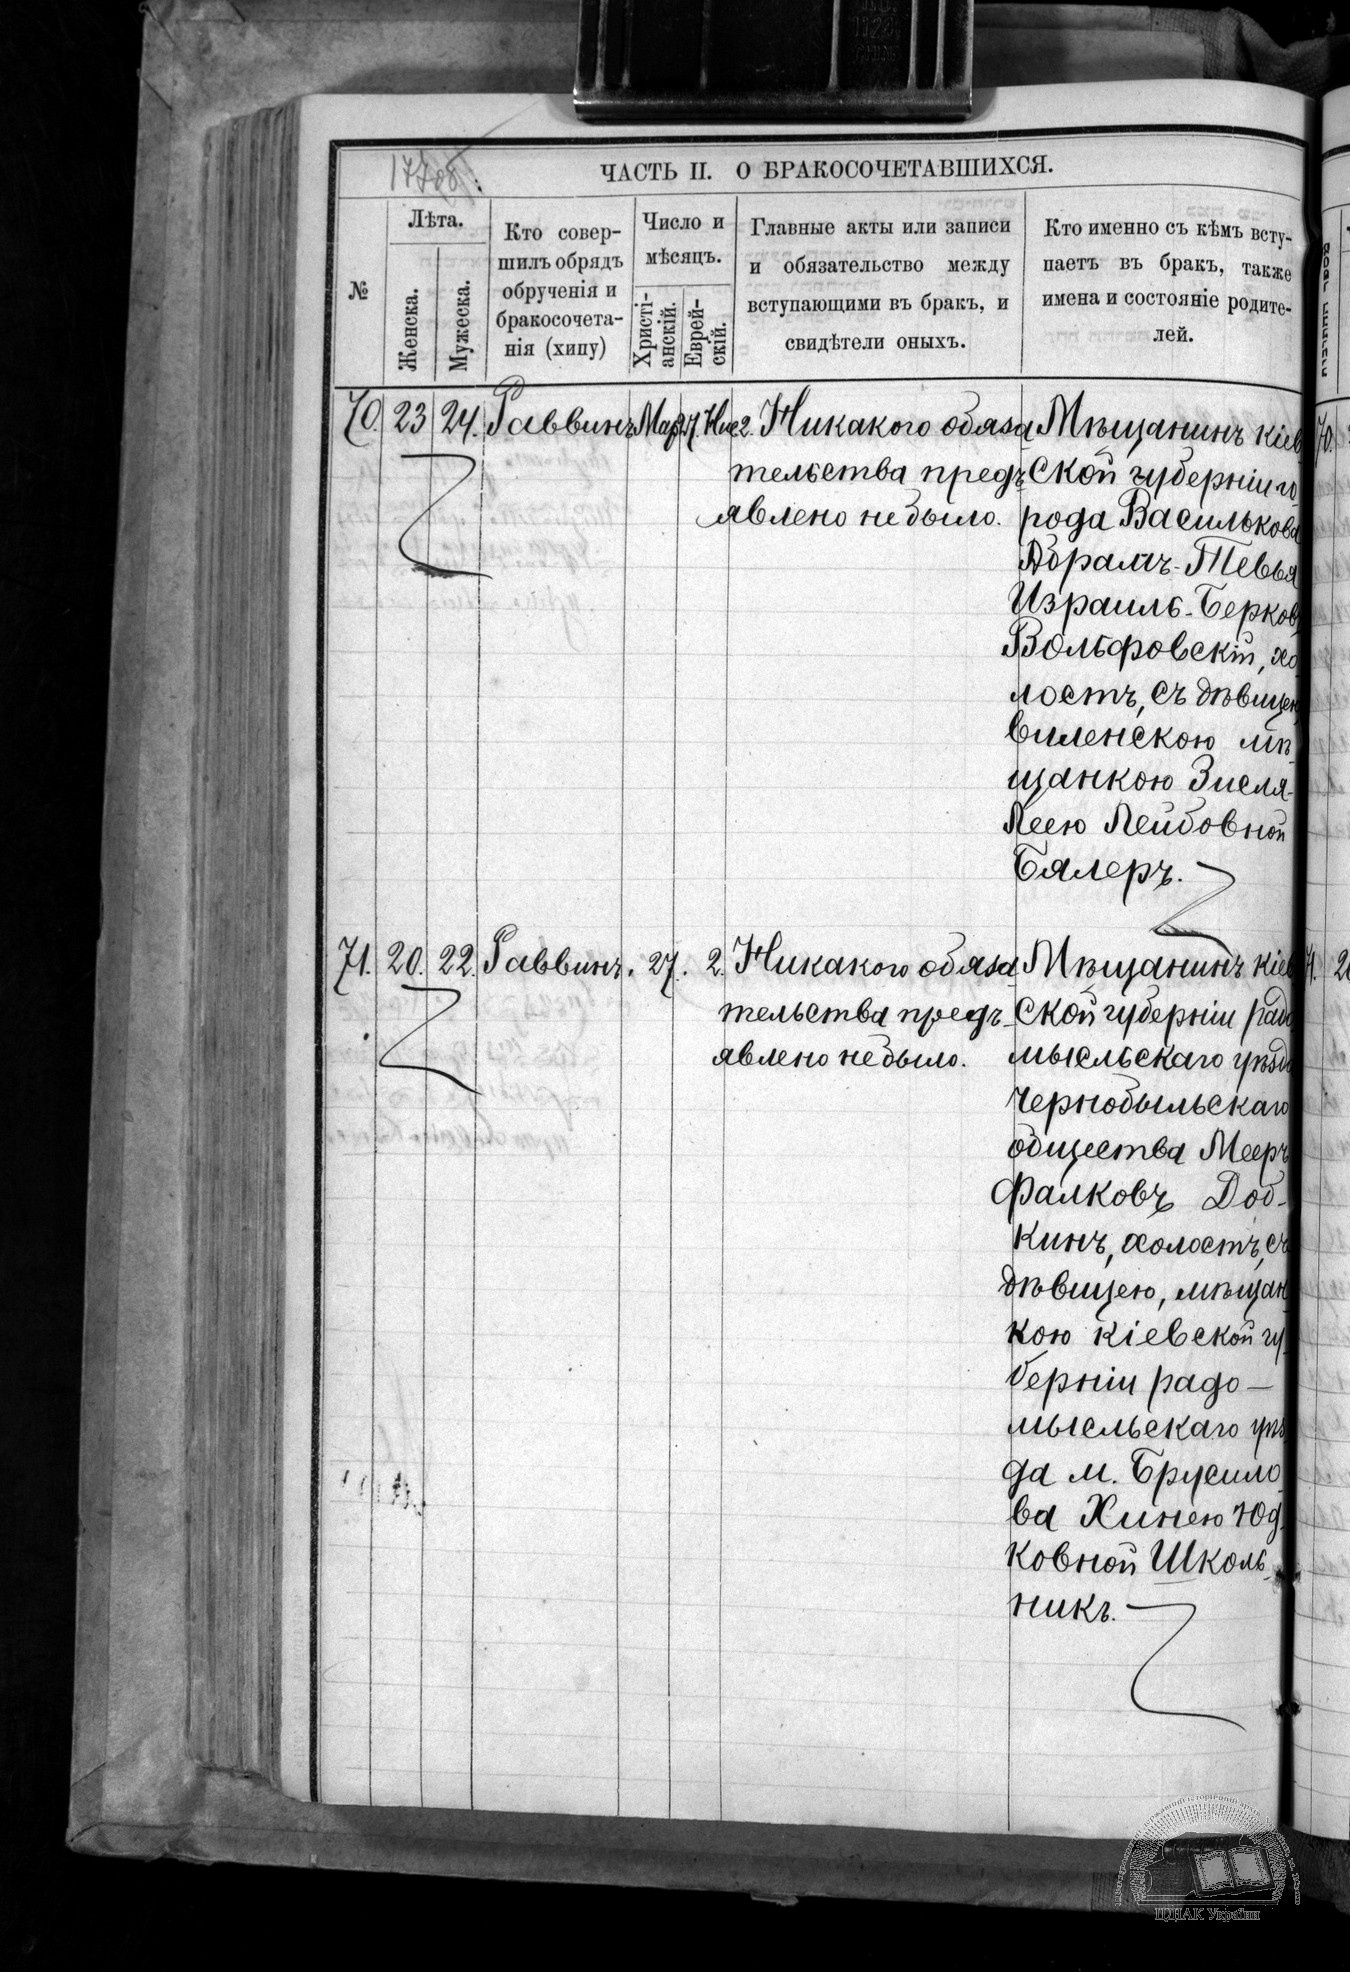 177об.
ЧАСТЬ II. О БРАКОСОЧЕТАВШИХСЯ.
№
Лѣта.
Женска.
Мужеска.
Кто совер-
шилъ обрядъ
обрученія и
бракосочета-
нія (хипу)
Число и
мѣсяцъ.
Христі-
анскій.
Еврей-
скій.
Главные акты или записи
и обязательство между
вступающими въ бракъ, и
свидѣтели оныхъ.
Кто именно съ кѣмъ всту-
паетъ въ бракъ, также
имена и состояніе родите-
лей.
70. 23 24. Раввинъ Мар 27. Нис 2. Никакого обяза
тельства предъ
явлено не было.
Мѣщанинъ кіев
ской губерніи го
рода Василькова
Абрамъ-Тевья
Израиль-Берков
Вольфовскій, хо
лостъ, съ дѣвицею
виленскою мѣ
щанкою Зисля-
Леею Лейбовной
Бялеръ.
71. 20. 22. Раввинъ. 27. 2. Никакого обяза
тельства предъ
явлено не было.
Мѣщанинъ кіев
ской губерніи радо
мысльскаго уѣзда
чернобыльскаго
общества Мееръ
Фалковъ Доб-
кинъ, холостъ, съ
дѣвицею, мѣщан
кою кіевской гу
берніи радо-
мысльскаго уѣз
да м. Брусило
ва Хинею Юд
ковной Школь
никъ.
70.
71.
ЦДІАК України